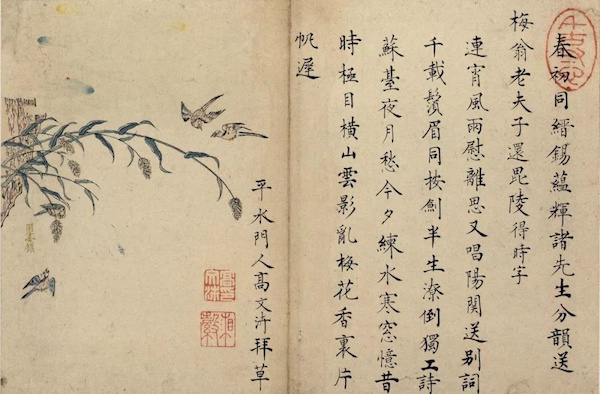 春初同縉錫蘊輝諸先生分韻送
梅翁老夫子還毘陵得時字
連宵風雨慰離思又唱陽關送别詞
千載鬚眉同按劍半生潦倒獨工詩
蘇臺夜月愁今夕練水寒窓憶昔
時極目橫山雲影亂梅花香裏片
帆遲
平水門人高文拜草